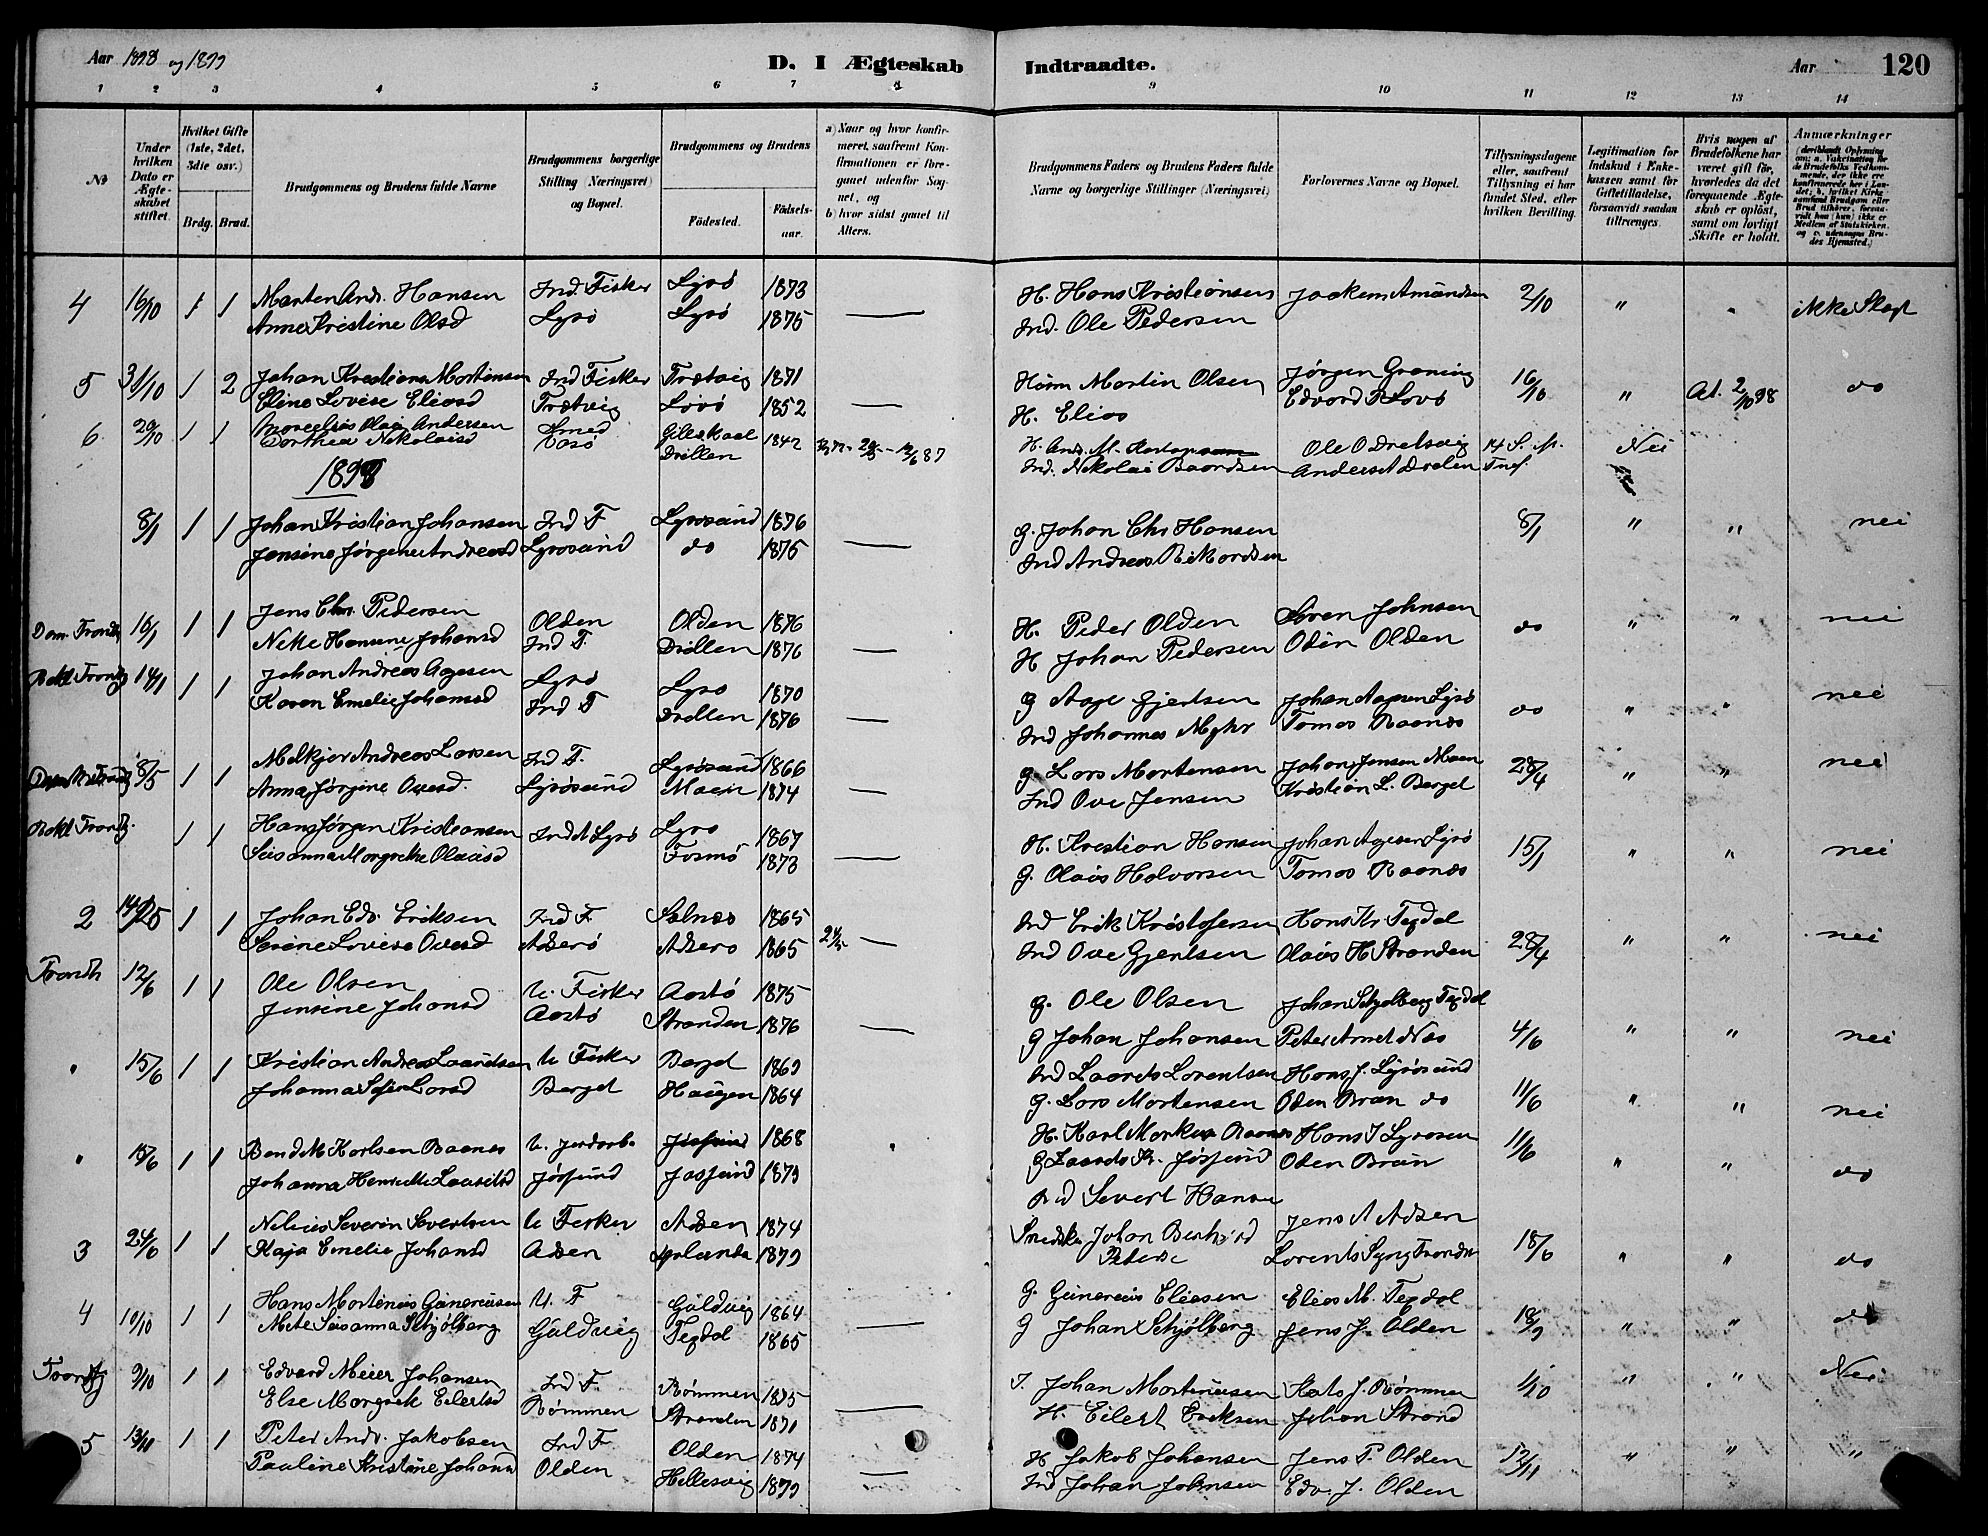 Aar 1898 og 1899
D. I Ægteskab Indtraadte.
Aar 120
1 2 3 4 5 6 7 8 9 10 11 12 13 14
No
Under hvilken Dato er Ægteskabet stiftet.
Hvilket Gifte (1ste, 2det, 3die osv.)
Brdg. Brud.
Brudgommens og Brudens fulde Navne
Brudgommens borgerlige Stilling (Næringsvei) og Bopæl.
Brudgommens og Brudens
Fødested. Fødselsaar.
a) Naar og hvor konfirmeret, saafremt Konfirmationen er foregaaet udenfor Sognet, og
b) hvor sidst gaaet til Alters.
Brudgommens Faders og Brudens Faders fulde Navne og borgerlige Stillinger (Næringsvei)
Forlovernes Navne og Bopæl.
Tillysningsdagene eller, saafremt Tillysning ei har fundet Sted, efter hvilken Bevilling.
Legitimation for Indskud i Enkekassen samt for Giftetilladelse, forsaavidt saadan tiltrænges.
Hvis nogen af Brudefolkene har været gift før, hvorledes da det foregaaende Ægteskab er opløst, samt om lovligt Skifte er holdt.
Anmærkninger
4 16/10 1 1 Morten Andr. Hansen Ind. Fisker Lysø 1873 H. Hans Kristiansen Joakim Amundsen 2/10 " " ikke Slegt
Anne Kristine Olsd Lysø Lysø 1875 — Ind. Ole Pedersen
5 31/10 1 2 Johan Kristian Mortensen Ind Fisker Trætvig 1871 Huusm Martin Olsen Jørgen Grøning 16/10 " At. 2/10 98 do
Eline Lovise Eliasd Trætvig Lovø 1852 — H. Elias Edvard R Lovø
6 29/10 1 1 Marcelius Olai Andersen Smed Gildeskaal 1842 H. Andr. M. Ole O Drætvig 14 S. M. Nei
Dorthea Nikolaisd Aasø Drillen Ind. Nikolai Baardsen Anders A Drølen
1898
8/1 1 1 Johan Kristian Johansen Ind F Lysøsund 1876 g. Johan Chr Hansen 8/1 " " nei
Jensine Jørgine Andreasd Lysøsund do 1875 — Ind Andreas Rikardsen
Dom Trondh 16/1 1 1 Jens Chr. Pedersen Olden Olden 1876 H. Peder Olden Søren Johnsen do " " nei
Nekke Hansine Johansd Ind F. Drillen 1876 — H Johan Pedersen Odin Olden
Bakl Trondhj 14/1 1 1 Johan Andreas Agesen Lysø Lysø 1870 g Aage Gjertsen Johan Aagesen Lysø do " " nei
Karen Emelie Johansd Ind F Drillen 1876 — Ind Johannes Myhr Tomas Raanes
8/5 1 1 Melkjor Andreas Larsen Ind F. Lysøsund 1866 g. Lars Mortensen Johan Jensen Moen 28/4 " " nei
Anna Jørgine Ovesd. Lysøsund Moen 1874 — Ind Ove Jensen Kristian L. Berget
Bakl Trondhj. 1 1 Hans Jørgen Kristiansen Ind A Lysø Lysø 1867 H. Kristian Hansen Johan Agesen Lysø 15/1 " " nei
Susanna Margrethe Olausd Fosmo 1873 — g. Olaus Halvorsen Tomas Raanes
2 1 1 Johan Edv. Eriksen Ind F. Selnæs 1865 Ind Erik Kristofersen Hans Kr Tegdal 28/4 " " nei
Serine Lovise Ovesd Adserø Adserø 1865 — Ind Ove Gjertsen Olaus H Stranden
Trondh 12/6 1 1 Ole Olsen U. Fisker Aastø 1875 g. Ole Olsen Johan Schjølberg Tegdal 4/6 " " nei
Jensine Johansd Aastø Stranden 1876 — g Johan Johansen Peter Arnet Næs
" 15/6 1 1 Kristian Andreas Lauritsen U Fisker Berget 1869 Ind Laurits Lorentsen Hans J. Lysøsund 11/6 " " nei
Johanna Sofie Larsd Berget Haugen 1864 g. Lars Mortensen Oden Bræn do
" 15/6 1 1 Bend M Karlsen Raanes U. Jordarb Jøssund 1868 H. Karl Markus Raanes Hans J Lysøsen 11/6 " " do
Johanna Henriette Lauritsd Jøssund Jøssund 1879 g Laurits Kr. Jøssund Oden Bræn
3 24/6 1 1 Nelius Severin Severtsen U Fisker Adsen 1874 Ind Severt Hansen Jens A Adsen 18/6 " " do
Kaja Emelie Johansd Adsen 1879 Johan Lorents Lyng Trondh
4 10/10 1 1 Hans Mortinus Gunnerusen U. F Guldvig 1864 g. Gunnerius Eliasen Elias M. Tegdal 18/9 " " do
Mete Susanna Schjølberg Guldvig Tegdal 1865 — g Johan Schjølberg Jens J. Olden
Trondhj 9/10 1 1 Edvard Meier Johansen Ind F. Rømmen 1875 I. Johan Martinusen Mats J. Rømmen 1/10 " " Nei
Else Margrete Eilertsd Rømmen Stranden 1871 — H. Eilert Eriksen Johan Strand
5 13/11 1 1 Peter Andr. Jakobsen Ind F Olden 1874 H Jakob Johansen Jens P. Olden 12/11 " " "
Pauline Kristine Johansd Olden Hellesvig 1879 — Ind Johan Johnsen Edv. J. Olden